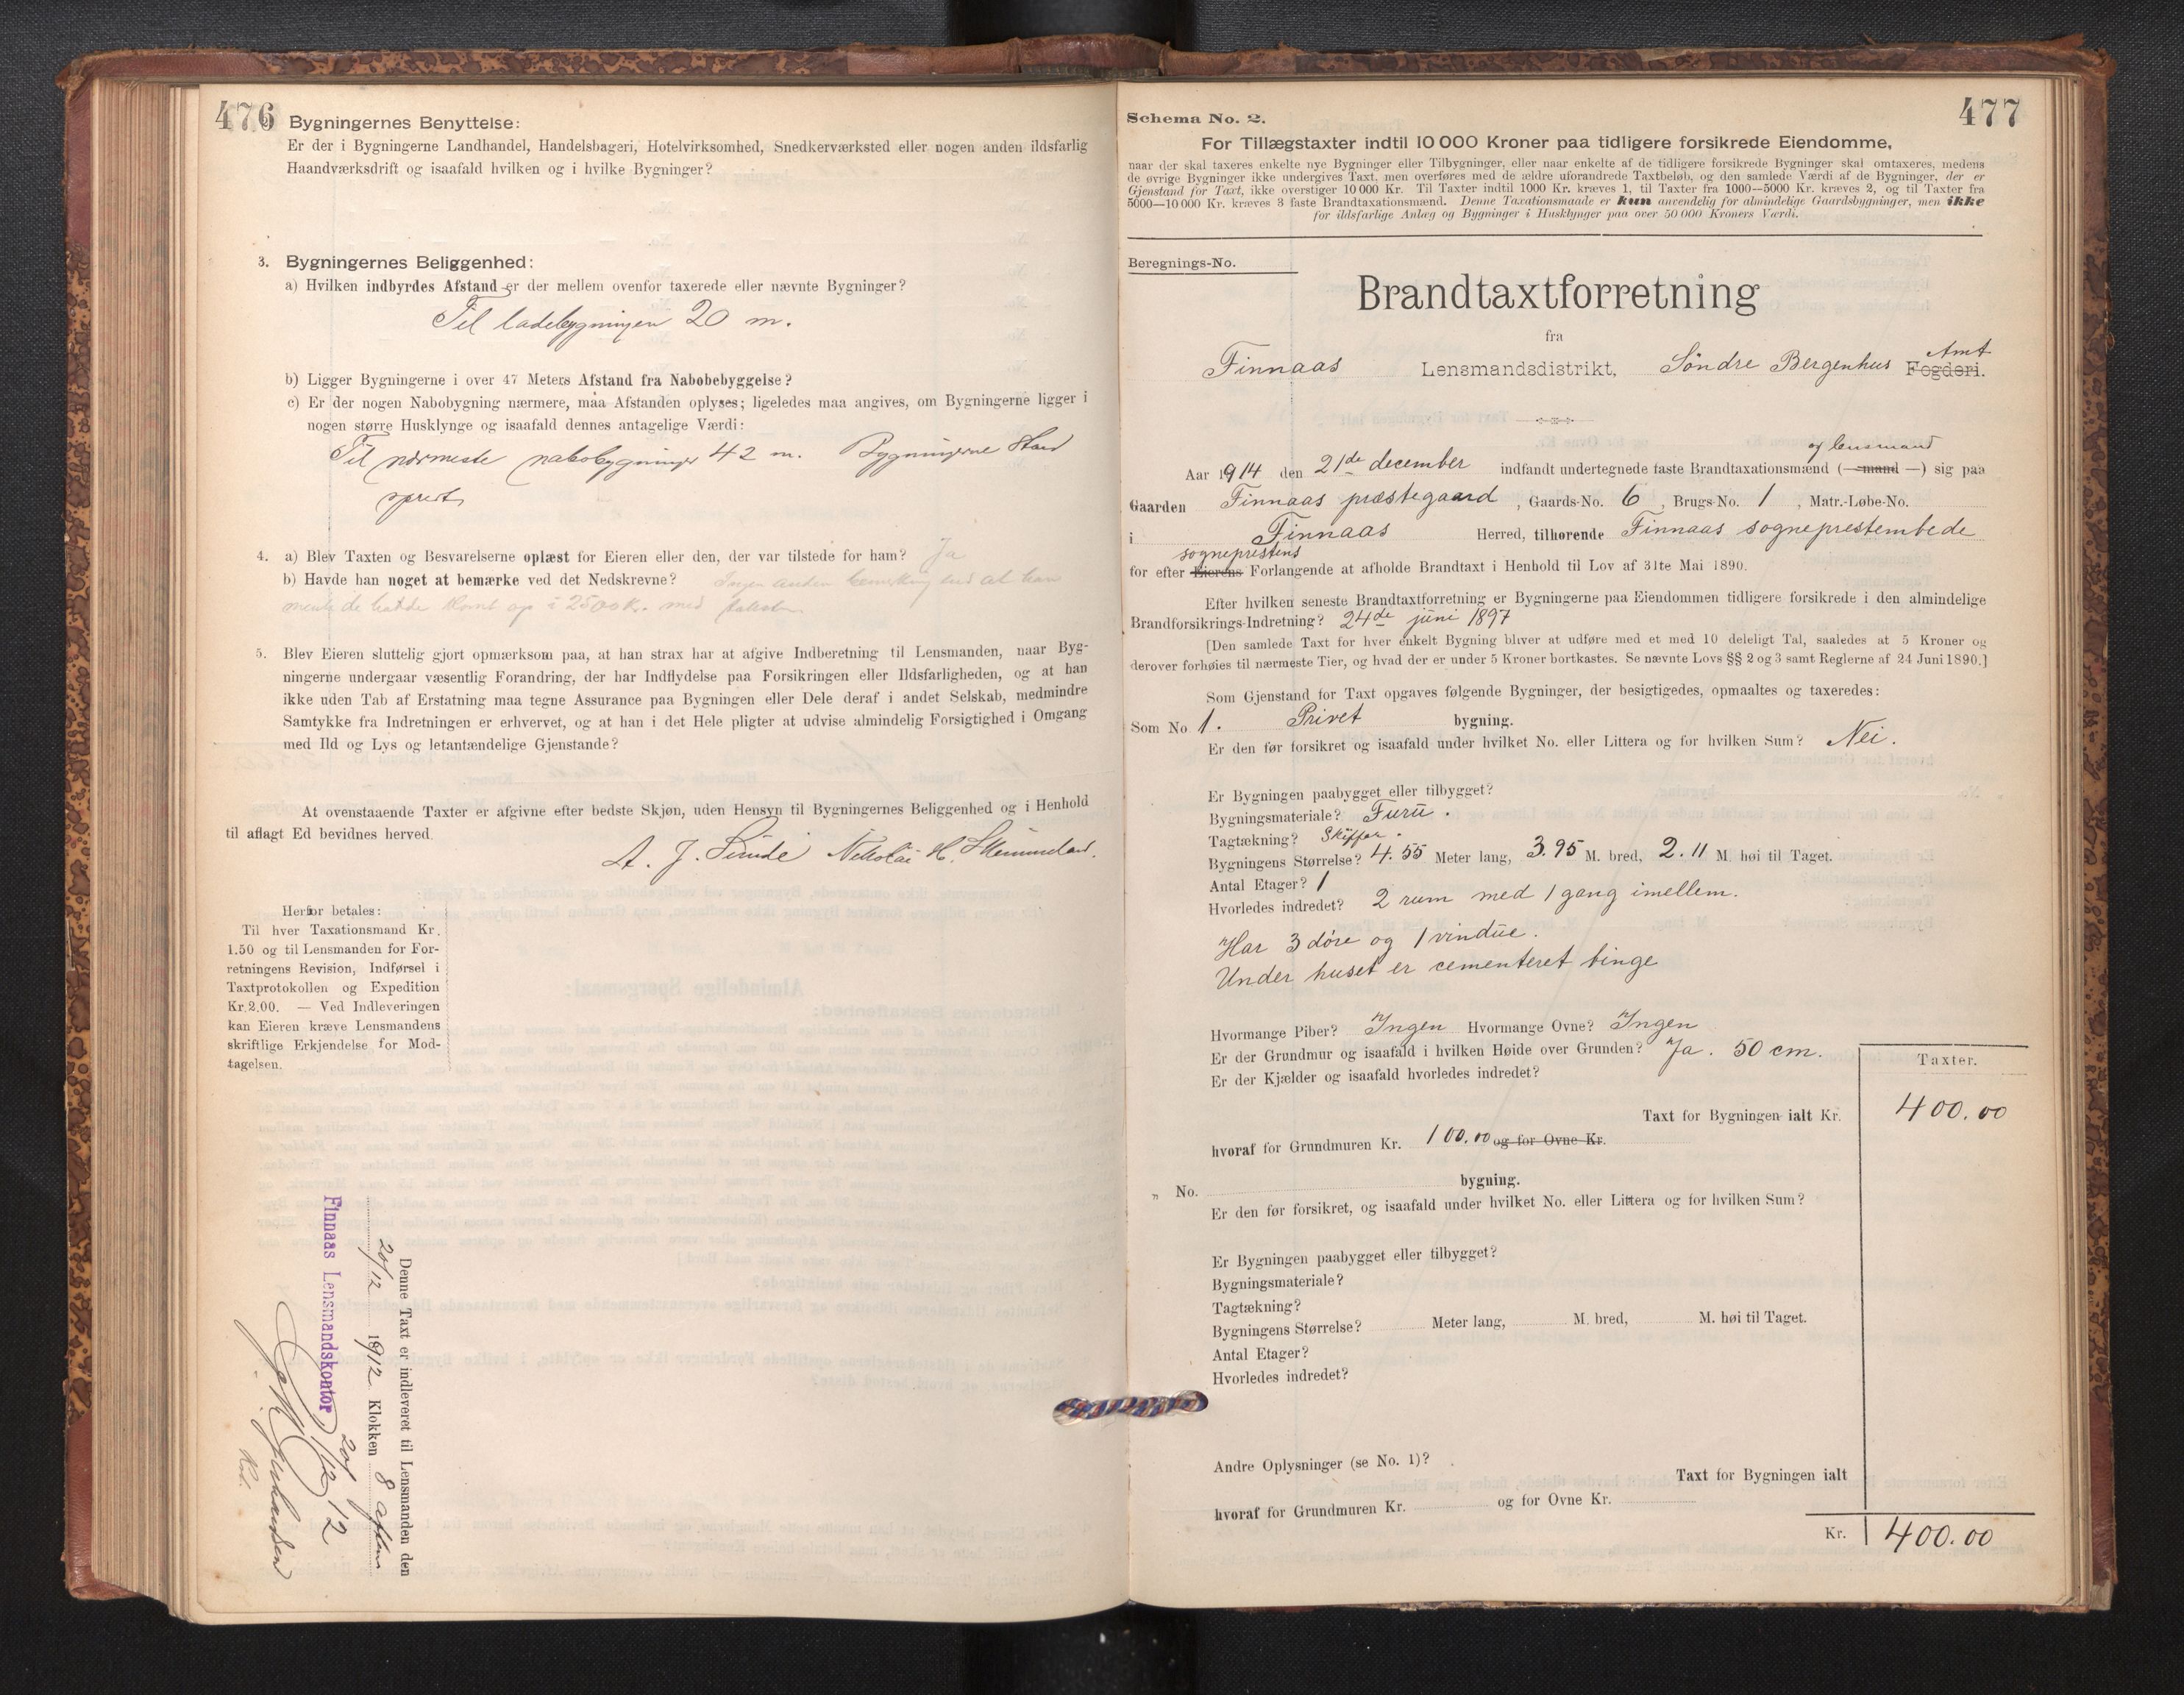 476
Bygningernes Benyttelse:
Er der i Bygningerne Landhandel, Handelsbageri, Hotelvirksomhed, Snedkerværksted eller nogen anden ildsfarlig
Haandværksdrift og isaafald hvilken og i hvilke Bygninger?
3. Bygningernes Beliggenhed:
a) Hvilken indbyrdes Afstand er der mellem ovenfor taxerede eller nævnte Bygninger?
Til ladebygningen 20 m.
b) Ligger Bygningerne i over 47 Meters Afstand fra Nabobebyggelse?
c) Er der nogen Nabobygning nærmere, maa Afstanden oplyses; ligeledes maa angives, om Bygningerne ligger i
nogen større Husklynge og isaafald dennes antagelige Værdi:
Til nærmeste nabobygninger 42 m. Bygningerne staar
spredt
4. a) Blev Taxten og Besvarelserne oplæst for Eieren eller den, der var tilstede for ham? Ja
b) Havde han noget at bemærke ved det Nedskrevne? Ingen anden bemerkning end at han
mente de burde komt op i 2500 Kr. med taksten
5. Blev Eieren sluttelig gjort opmærksom paa, at han strax har at afgive Indberetning til Lensmanden, naar Byg-
ningerne undergaar væsentlig Forandring, der har Indflydelse paa Forsikringen eller Ildsfarligheden, og at han
ikke uden Tab af Erstatning maa tegne Assurance paa Bygningen eller Dele deraf i andet Selskab, medmindre
Samtykke fra Indretningen er erhvervet, og at han i det Hele pligter at udvise almindelig Forsigtighed i Omgang
med Ild og Lys og letantændelige Gjenstande?
At ovenstaaende Taxter er afgivne efter bedste Skjøn, uden Hensyn til Bygningernes Beliggenhed og i Henhold
til aflagt Ed bevidnes herved.
A. J. Sunde Nikolai H.
Herfor betales:
Til hver Taxationsmand Kr.
1.50 og til Lensmanden for For-
retningens Revision, Indførsel i
Taxtprotokollen og Expedition
Kr. 2.00. — Ved Indleveringen
kan Eieren kræve Lensmandens
skriftlige Erkjendelse for Mod-
tagelsen.
Denne Taxt er indleveret til Lensmanden den
20/12 1912 Klokken 8 aften
Finnaas Lensmandskontor 20/12 12
477
Schema No. 2.
For Tillægstaxter indtil 10 000 Kroner paa tidligere forsikrede Eiendomme,
naar der skal taxeres enkelte nye Bygninger eller Tilbygninger, eller naar enkelte af de tidligere forsikrede Bygninger skal omtaxeres, medens
de øvrige Bygninger ikke undergives Taxt, men overføres med de ældre uforandrede Taxtbeløb, og den samlede Værdi af de Bygninger, der er
Gjenstand for Taxt, ikke overstiger 10 000 Kr. Til Taxter indtil 1000 Kr. kræves 1, til Taxter fra 1000—5000 Kr. kræves 2, og til Taxter fra
5000—10 000 Kr. kræves 3 faste Brandtaxationsmænd. Denne Taxationsmaade er kun anvendelig for almindelige Gaardsbygninger, men ikke
for ildsfarlige Anlæg og Bygninger i Husklynger paa over 50 000 Kroners Værdi.
Beregnings-No.
Brandtaxtforretning
fra
Amt
Finnaas Lensmandsdistrikt, Söndre Bergenhus Fogderi.
og lensmand
Aar 1914 den 21de december indfandt undertegnede faste Brandtaxationsmænd (—mand —) sig paa
Gaarden Finnaas præstegaard, Gaards-No. 6, Brugs-No. 1, Matr.-Løbe-No.
i Finnaas Herred, tilhørende Finnaas sogneprestembede
sogneprestens
for efter Eierens Forlangende at afholde Brandtaxt i Henhold til Lov af 31te Mai 1890.
Efter hvilken seneste Brandtaxtforretning er Bygningerne paa Eiendommen tidligere forsikrede i den almindelige
Brandforsikrings-Indretning? 24de juni 1897
[Den samlede Taxt for hver enkelt Bygning bliver at udføre med et med 10 deleligt Tal, saaledes at 5 Kroner og
derover forhøies til nærmeste Tier, og hvad der er under 5 Kroner bortkastes. Se nævnte Lovs §§ 2 og 3 samt Reglerne af 24 Juni 1890.]
Som Gjenstand for Taxt opgaves følgende Bygninger, der besigtigedes, opmaaltes og taxeredes:
Som No 1. Privet bygning.
Er den før forsikret og isaafald under hvilket No. eller Littera og for hvilken Sum? Nei.
Er Bygningen paabygget eller tilbygget?
Bygningsmateriale? Furu.
Tagtækning? Skiffer.
Bygningens Størrelse? 4.55 Meter lang, 3.95 M. bred, 2.11 M. høi til Taget.
Antal Etager? 1
Hvorledes indredet? 2 rum med 1 gang imellem.
Har 3 döre og 1 vindue.
Under huset er cementeret binge
Hvormange Piber? Ingen Hvormange Ovne? Ingen
Er der Grundmur og isaafald i hvilken Høide over Grunden? Ja. 50 cm.
Er der Kjælder og isaafald hvorledes indredet?
Taxter.
Taxt for Bygningen ialt Kr. 400.00
hvoraf for Grundmuren Kr. 100.00 og for Ovne Kr.
„ No. bygning.
Er den før forsikret, og isaafald under hvilket No. eller Littera og for hvilken Sum?
Er Bygningen paabygget eller tilbygget?
Bygningsmateriale?
Tagtækning?
Bygningens Størrelse? Meter lang, M. bred, M. høi til Taget.
Antal Etager?
Hvorledes indredet?
Andre Oplysninger (se No. 1)?
Taxt for Bygningen ialt
hvoraf for Grundmuren Kr. og for Ovne Kr.
Kr. 400.00